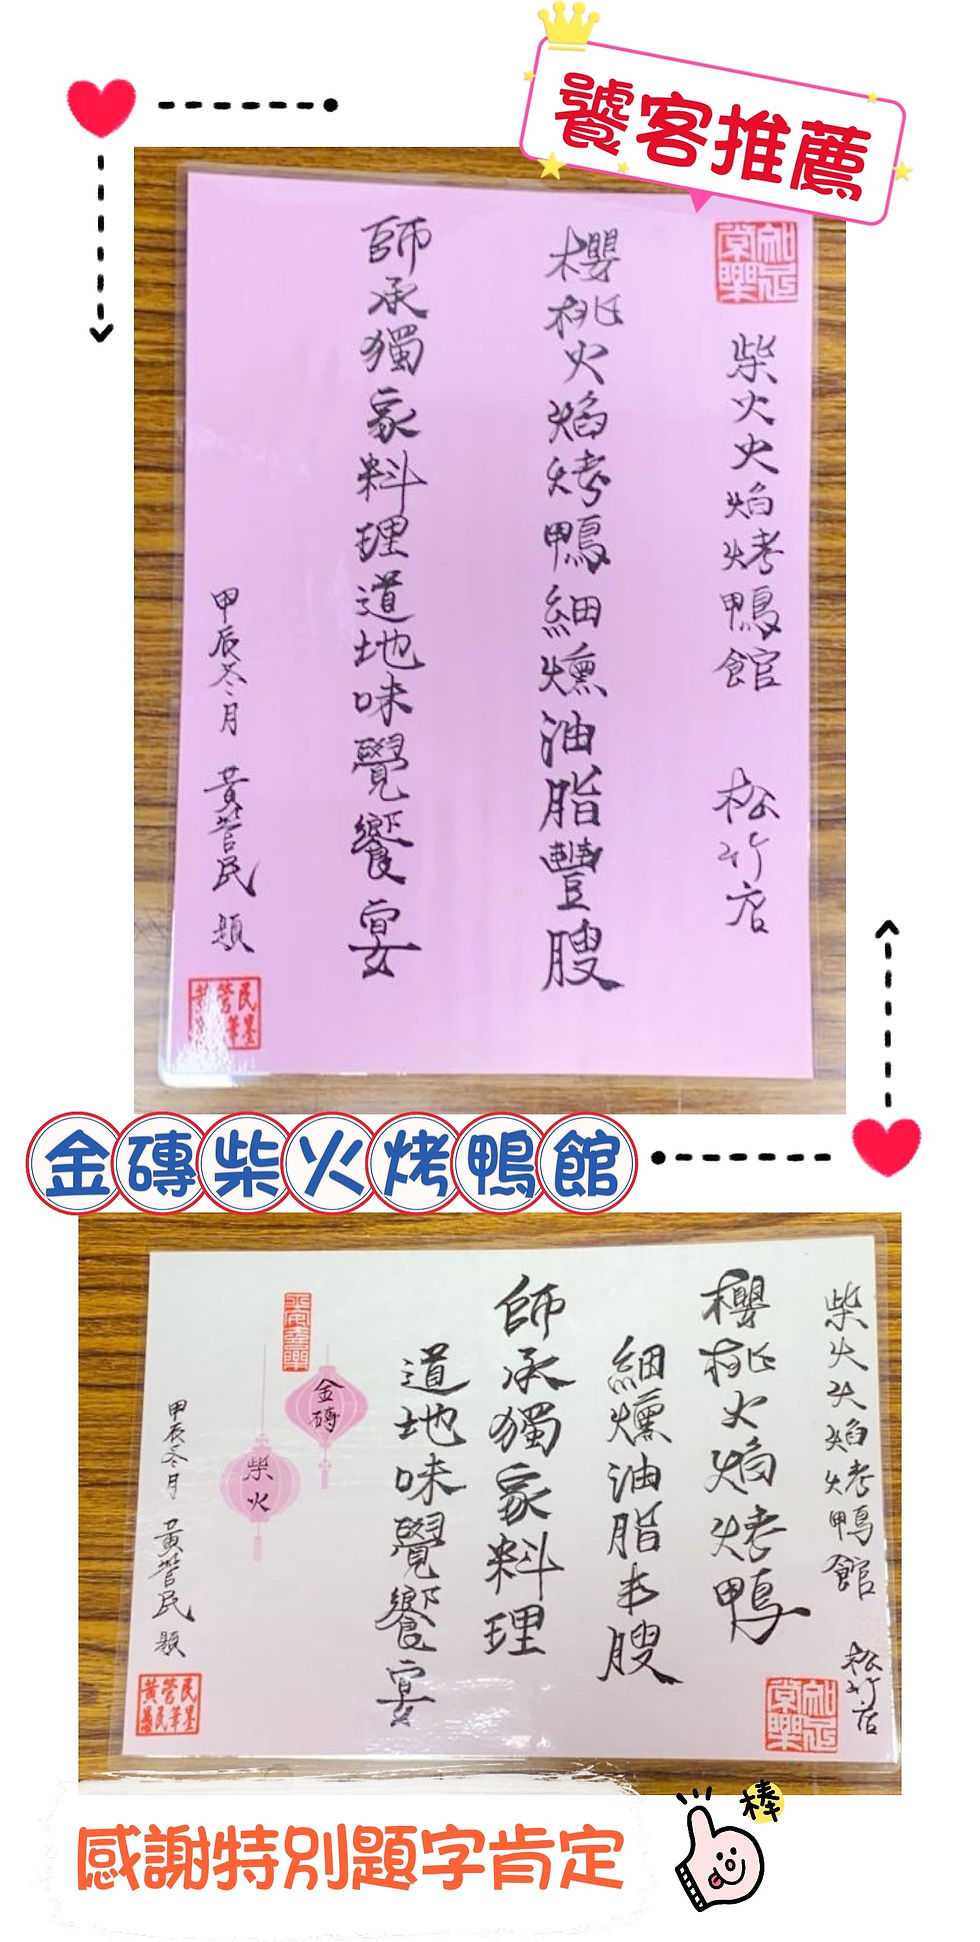 饕客推薦
知足常樂
柴火火焰烤鴨館 松竹店
櫻桃火焰烤鴨細燻油脂豐腴
師承獨家料理道地味覺饗宴
甲辰冬月 黃營民 題
金磚柴火烤鴨館
柴火火焰烤鴨館 松竹店
知足常樂
櫻桃火焰烤鴨
細燻油脂丰腴
師承獨家料理
道地味覺饗宴
金磚
柴火
甲辰冬月 黃營民 題
感謝特別題字肯定
棒